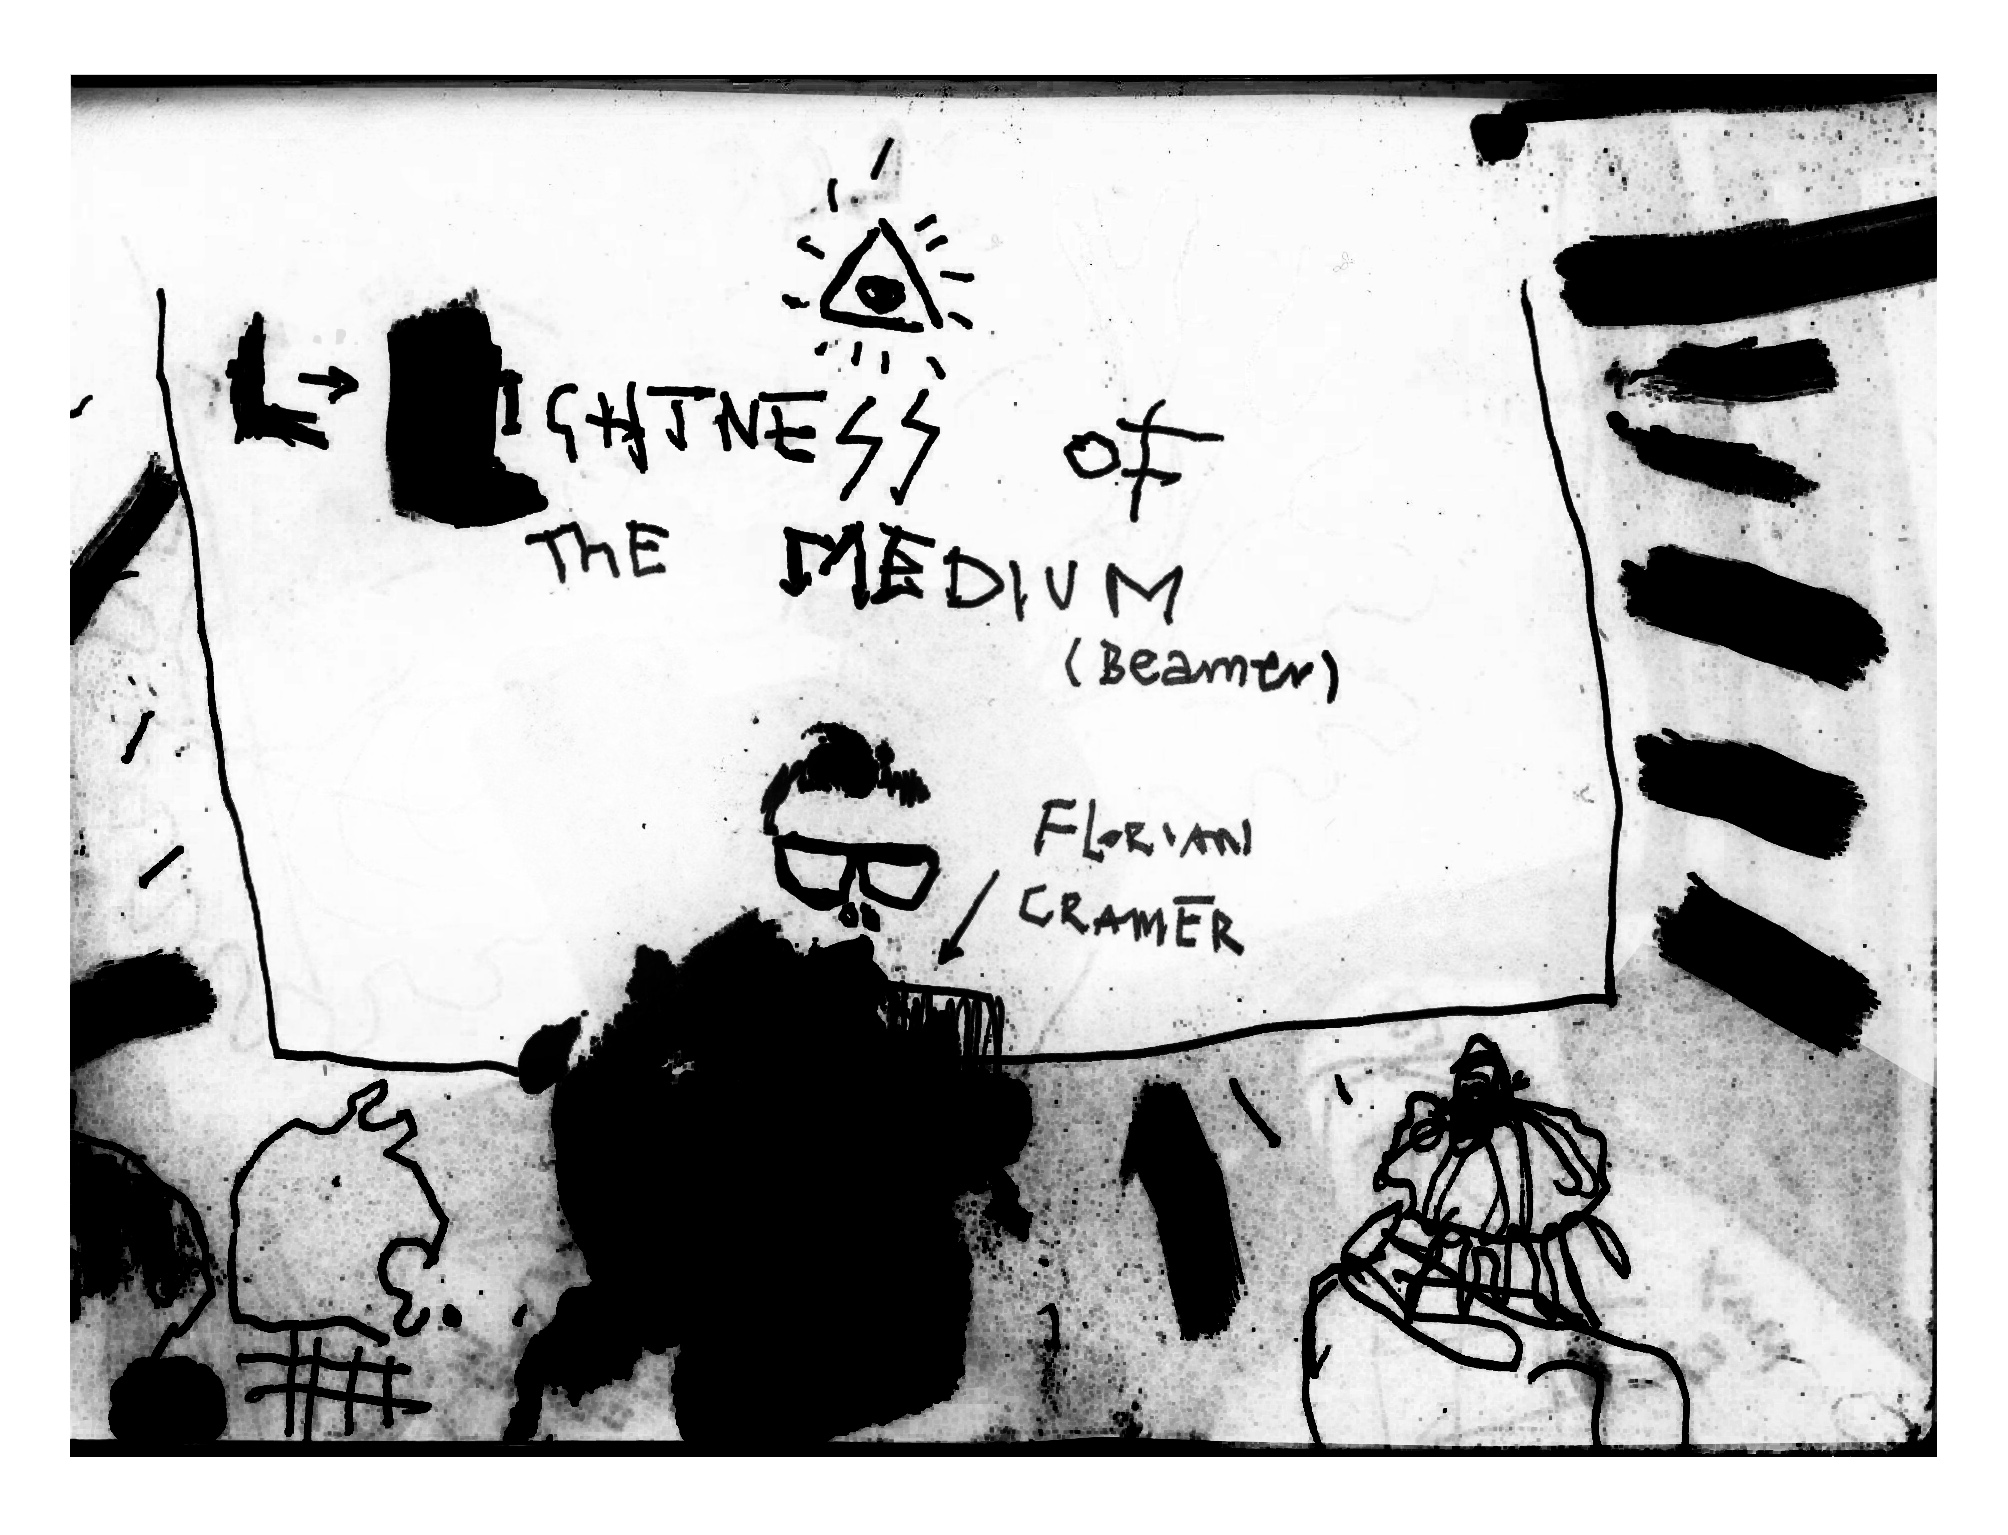 L → LIGHTNESS OF
THE MEDIUM
(Beamer)
FLORIAN
CRAMER